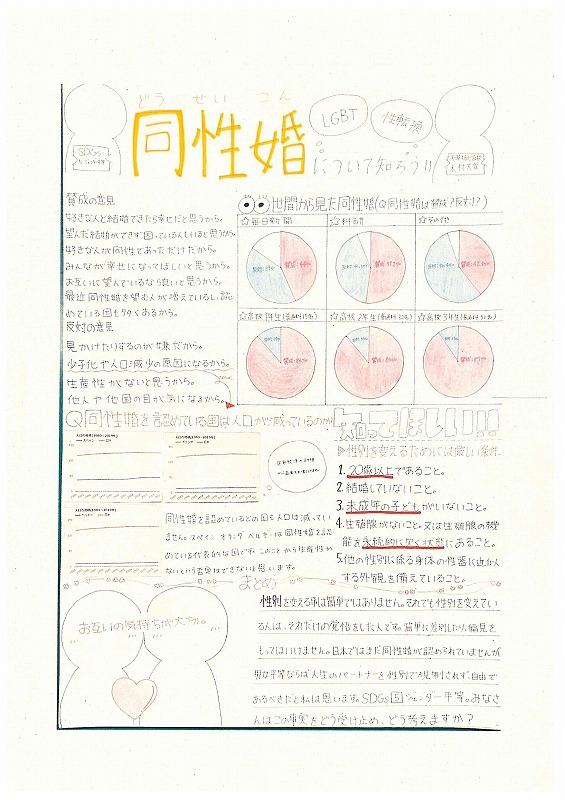 どう せい こん
同性婚
について知ろう!!
LGBT
性転換
SDGs
賛成の意見
好きな人と結婚できたら幸せだと思うから。
望んだ結婚ができず困っている人もいると思うから。
好きな人が同性であっただけだから。
みんなが幸せになってほしいと思うから。
お互いに望んでいるなら良いと思うから。
最近同性婚を望む人が増えているし、認
めている国も多くあるから。
反対の意見
見かけたりするのが嫌だから。
少子化や人口減少の原因になるから。
生産性がないと思うから。
他人や他国の目が気になるから。
世間から見た同性婚(Q同性婚は賛成?反対?)
☆毎日新聞
☆科研
☆その他
☆高校1年生
☆高校2年生
☆高校3年生
Q同性婚を認めている国は人口が減っているのか
同性婚を認めているどの国も人口は減ってい
ません。スペイン オランダ ベルギーは同性婚を認
めている代表的な国です。このことから生産性が
ないという言葉はできないと思います。
知ってほしい!!
▷性別を変えるためには厳しい条件
1. 20歳以上であること。
2. 結婚していないこと。
3. 未成年の子どもがいないこと。
4. 生殖腺がないこと。又は生殖腺の機
能を永続的に欠く状態にあること。
5. 他の性別に係る身体の性器に近似
する外観を備えていること。
まとめ
お互いの気持ちが大切。
性別を変える事は簡単ではありません。それでも性別を変えてい
る人は、それだけの覚悟をした人です。簡単に差別したり、偏見を
もってはいけません。日本ではまだ同性婚が認められていませんが
男女平等ならば人生のパートナーを性別で規制されず自由で
あるべきだと私は思います。SDGs 5 ジェンダー平等。みなさ
んはこの事実をどう受け止め、どう考えますか?